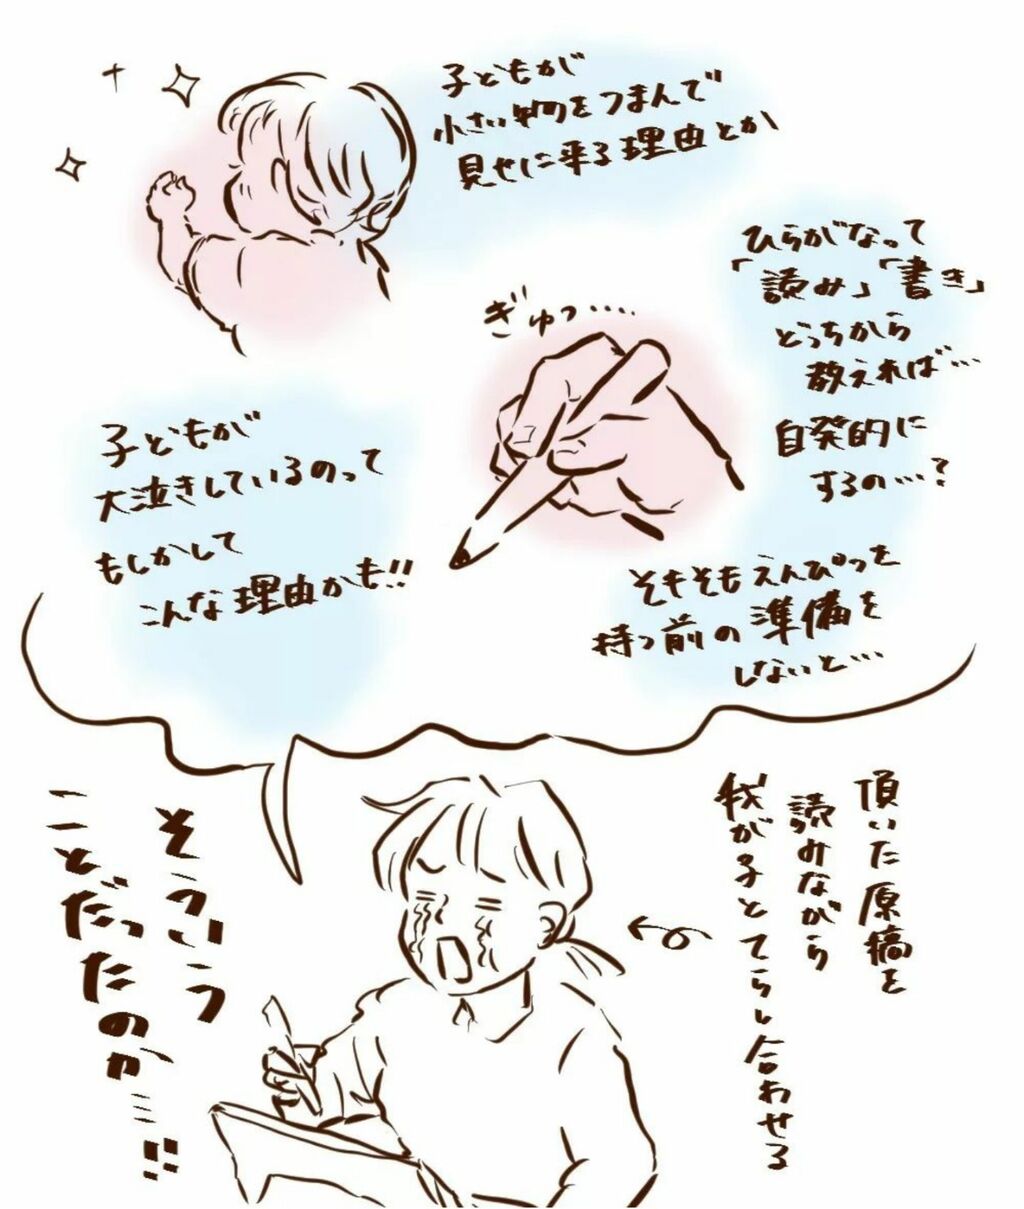 子どもが
小さい物をつまんで
見せに来る理由とか
ひらがなって
「読み」「書き」
どっちから
教えれば…
自発的に
するの…?
ぎゅっ….
子どもが
大泣きしているのって
もしかして
こんな理由かも!!
そもそもえんぴつを
持つ前の準備を
しないと…
頂いた原稿を
読みながら
我が子とてらし合わせる
そういう
ことだったのか…!!